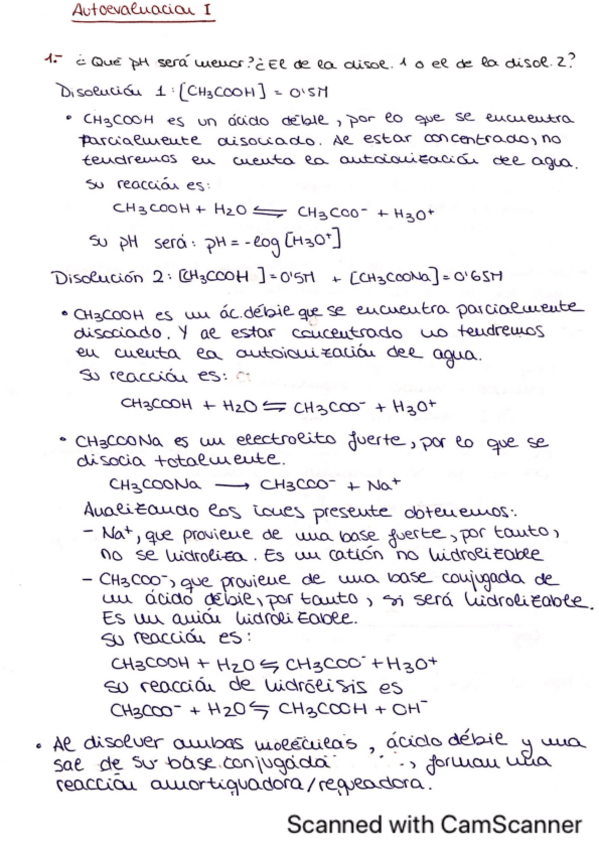 Autoevaluación I
1.- ¿Qué pH será menor? ¿El de la disol. 1 o el de la disol. 2?
Disolución 1: [CH3COOH] = 0'5M
• CH3COOH es un ácido débil, por lo que se encuentra
parcialmente disociado. Al estar concentrado, no
tendremos en cuenta la autoionización del agua.
Su reacción es:
CH3COOH + H2O ⇌ CH3COO⁻ + H3O⁺
Su pH será: pH = -log [H3O⁺]
Disolución 2: [CH3COOH] = 0'5M + [CH3COONa] = 0'65M
• CH3COOH es un ác. débil que se encuentra parcialmente
disociado. Y al estar concentrado no tendremos
en cuenta la autoionización del agua.
Su reacción es:
CH3COOH + H2O ⇌ CH3COO⁻ + H3O⁺
• CH3COONa es un electrolito fuerte, por lo que se
disocia totalmente.
CH3COONa ⟶ CH3COO⁻ + Na⁺
Analizando los iones presente obtenemos:
- Na⁺, que proviene de una base fuerte, por tanto,
no se hidroliza. Es un catión no hidrolizable
- CH3COO⁻, que proviene de una base conjugada de
un ácido débil, por tanto, si será hidrolizable.
Es un anión hidrolizable.
Su reacción es:
CH3COOH + H2O ⇌ CH3COO⁻ + H3O⁺
su reacción de hidrólisis es
CH3COO⁻ + H2O ⇌ CH3COOH + OH⁻
• Al disolver ambas moléculas, ácido débil y una
sal de su base conjugada, forman una
reacción amortiguadora/reguladora.
Scanned with CamScanner